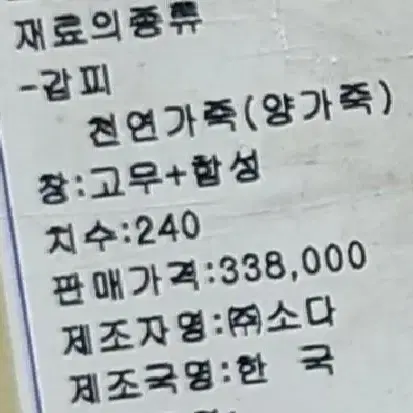 재료의종류
-갑피
천연가죽(양가죽)
창:고무+합성
치수:240
판매가격:338,000
제조자명:㈜소다
제조국명:한 국